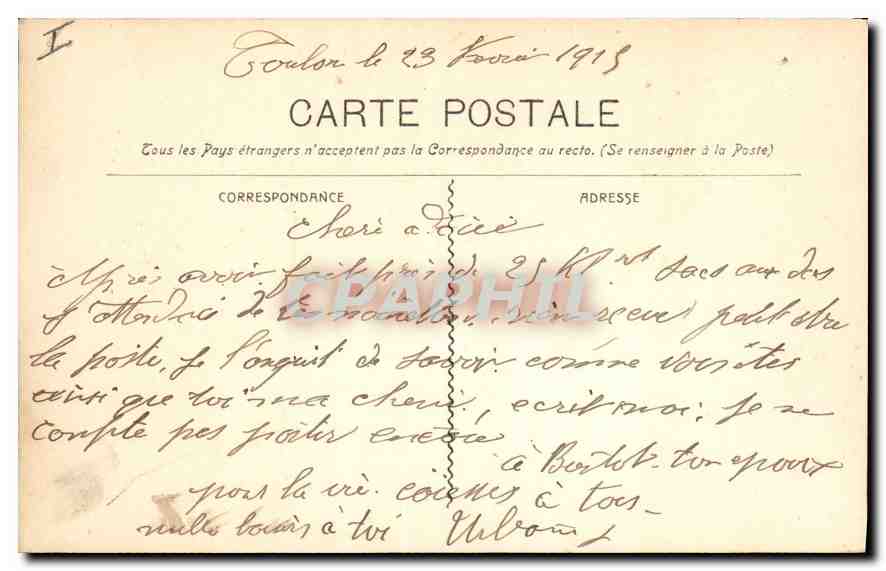 I
Toulon le 23 Fevrier 1915
CARTE POSTALE
Tous les Pays étrangers n'acceptent pas la Correspondance au recto. (Se renseigner à la Poste)
CORRESPONDANCE
ADRESSE
Cheri
Après avoir fait près de 25 K sacs aux dos
de rien recu petit etre
la poste, je languit de savoir comme vous etes
ainsi que toi ma cherie, ecrit moi, je ne
compte pas partir encore
à Bientot ton epoux
pour la vie. à tous
mille baisers à toi Urbain
CPAPHIL